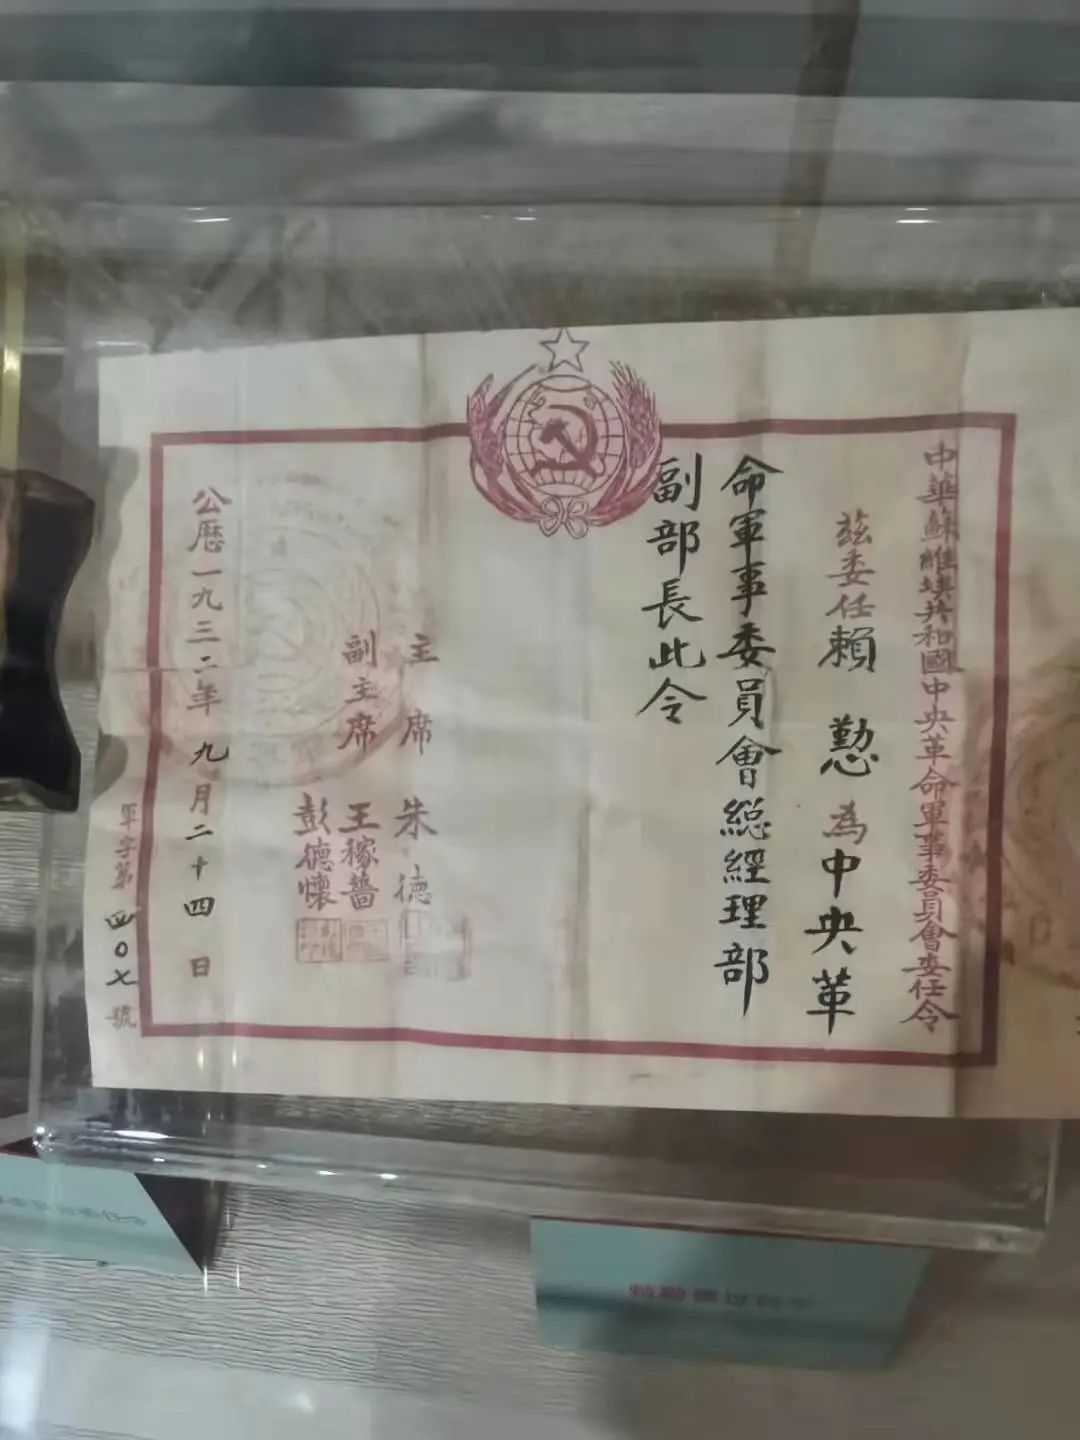 中華蘇維埃共和國中央革命軍事委員會委任令
茲委任賴勤為中央革
命軍事委員會總經理部
副部長此令
主席 朱德
副主席 王稼薔
彭德懷
公歷一九三二年九月二十四日
軍字第四〇七號